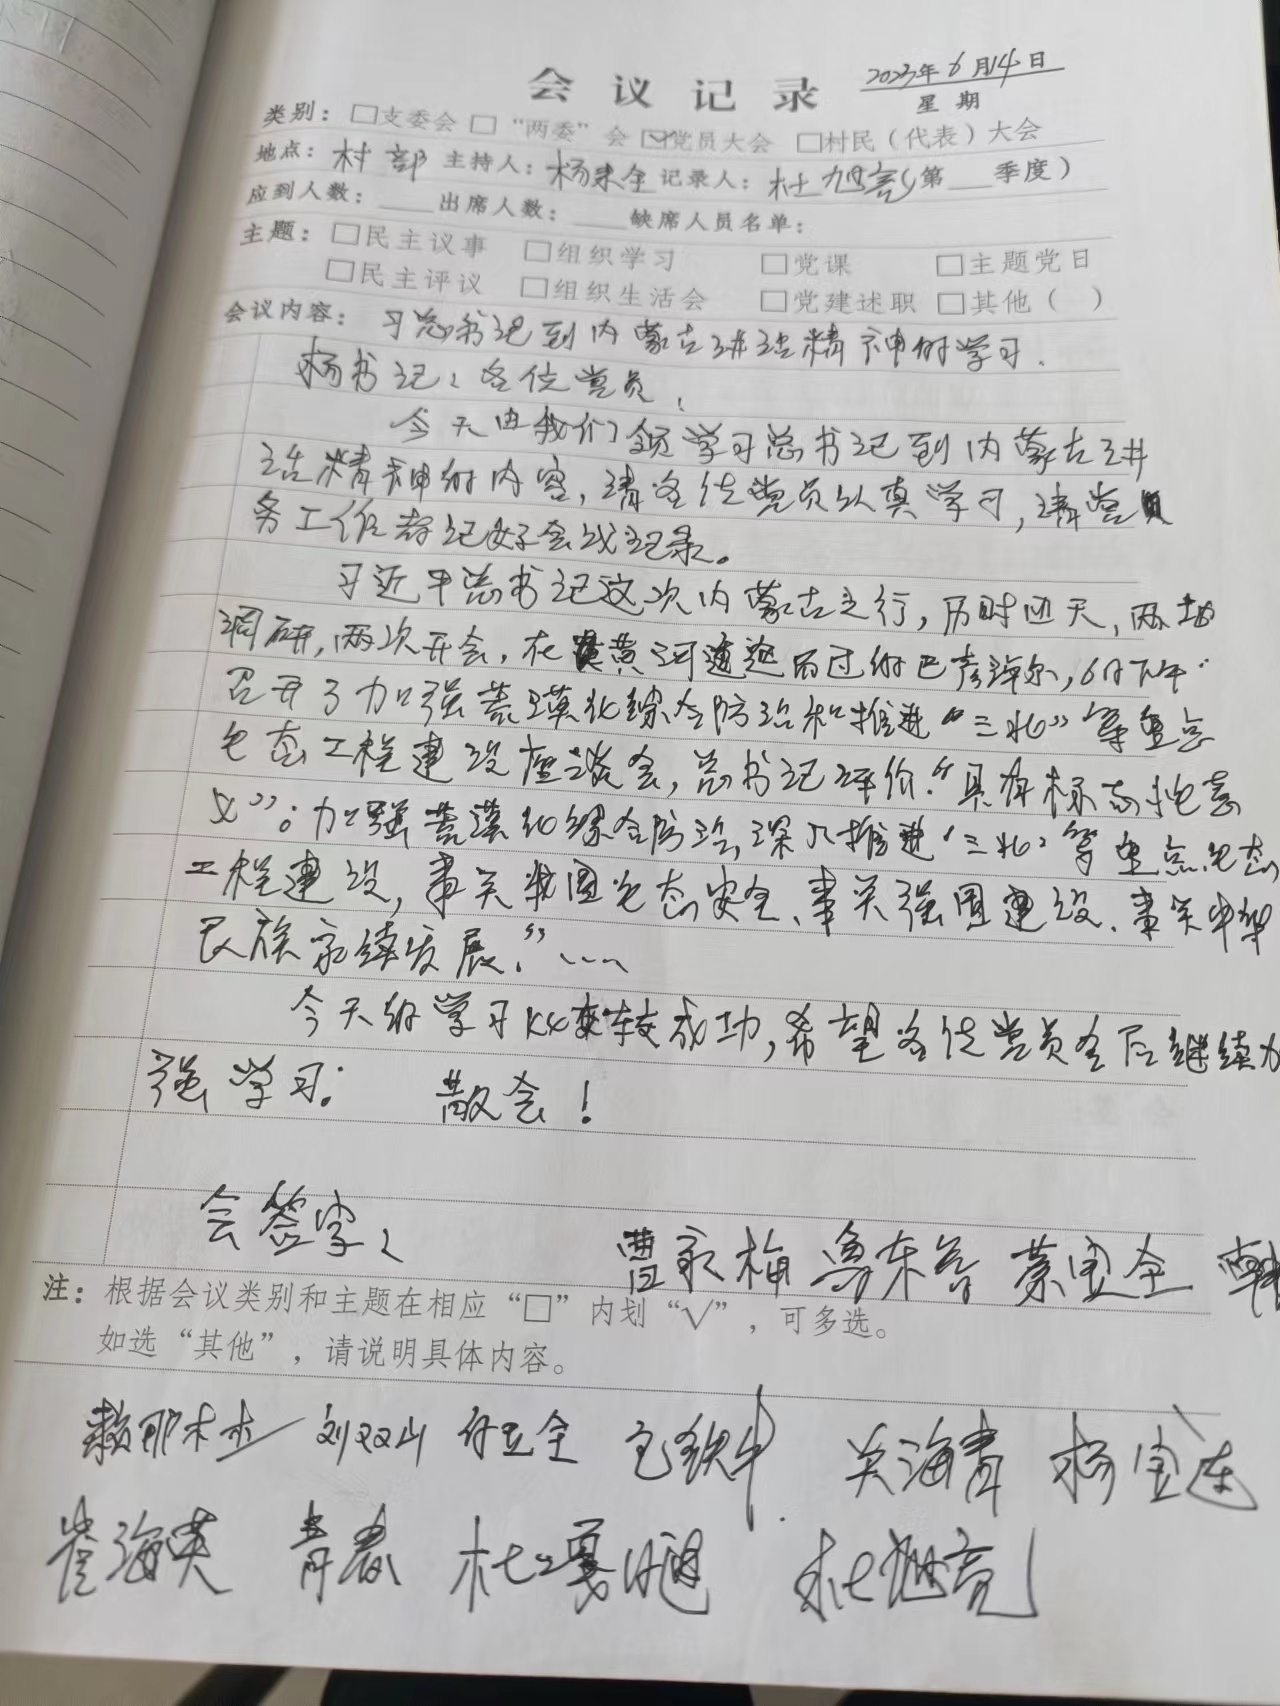 会议记录 2023年6月14日
星期
类别：□支委会 □“两委”会 ☑党员大会 □村民（代表）大会
地点：村部 主持人：杨来全 记录人：杜旭亮（第 季度）
应到人数： 出席人数： 缺席人员名单：
主题：□民主议事 □组织学习 □党课 □主题党日
□民主评议 □组织生活会 □党建述职 □其他（ ）
会议内容：习总书记到内蒙古讲话精神的学习.
杨书记：各位党员，
今天由我们领学习总书记到内蒙古讲
话精神的内容，请各位党员认真学习，请党员
务工作者记好会议记录。
习近平总书记这次内蒙古之行，历时四天，两地
调研，两次开会，在黄河逶迤而过的巴彦淖尔，6日下午
召开了加强荒漠化综合防治和推进“三北”等重点
生态工程建设座谈会，总书记评价“具有标志性意
义”：加强荒漠化综合防治，深入推进“三北”等重点生态
工程建设，事关我国生态安全、事关强国建设、事关中华
民族永续发展。”……
今天的学习比较成功，希望各位党员今后继续加
强学习. 散会！
会签字：
曹永梅
注：根据会议类别和主题在相应“□”内划“√”，可多选。
如选“其他”，请说明具体内容。
刘双山 包铁牛 关海青 杨宝连
崔海英 青春 杜旭亮